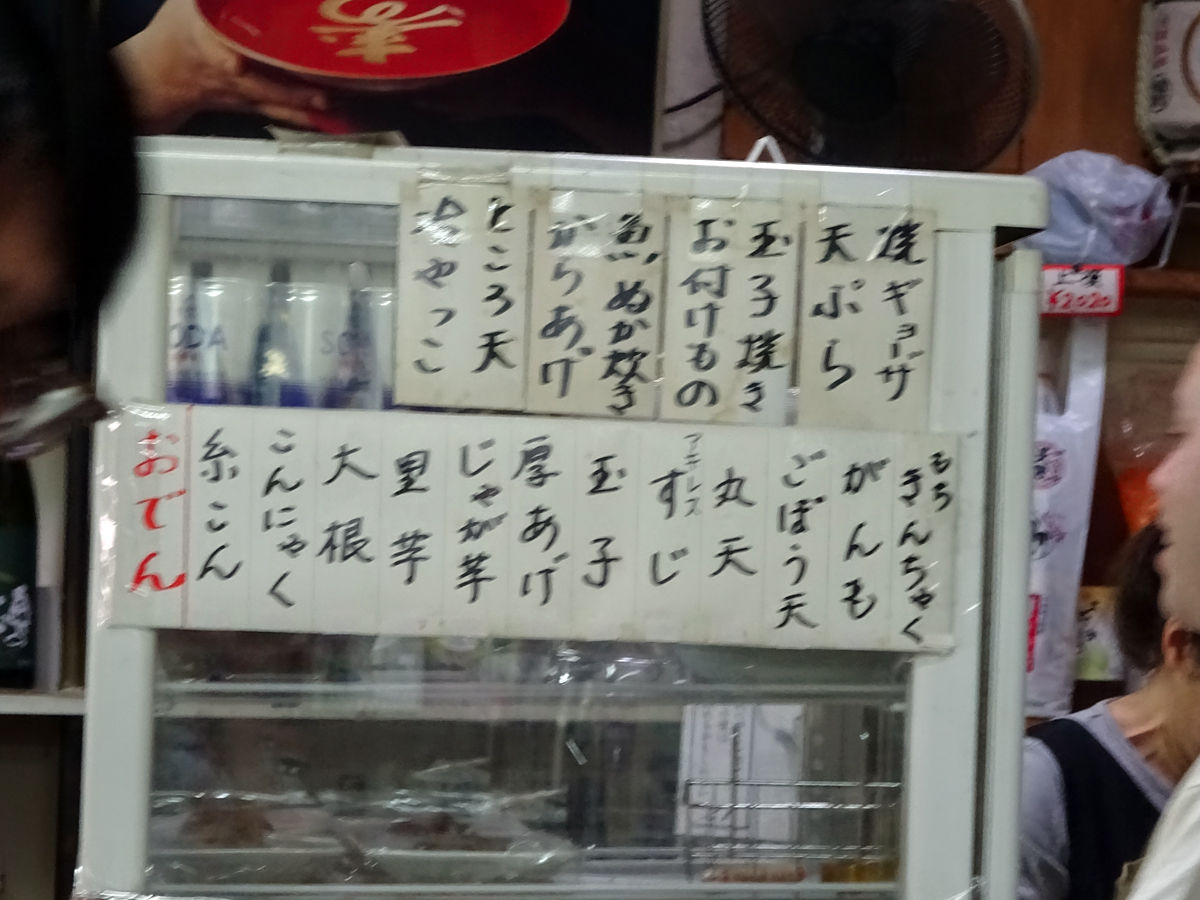 寿
焼ギョーザ
天ぷら
玉子焼き
お付けもの
魚ぬか炊き
からあげ
ところ天
冷やっこ
¥2020
SODA
もち
きんちゃく
がんも
ごぼう天
丸天
アキレス
すじ
玉子
厚あげ
じゃが芋
里芋
大根
こんにゃく
糸こん
おでん